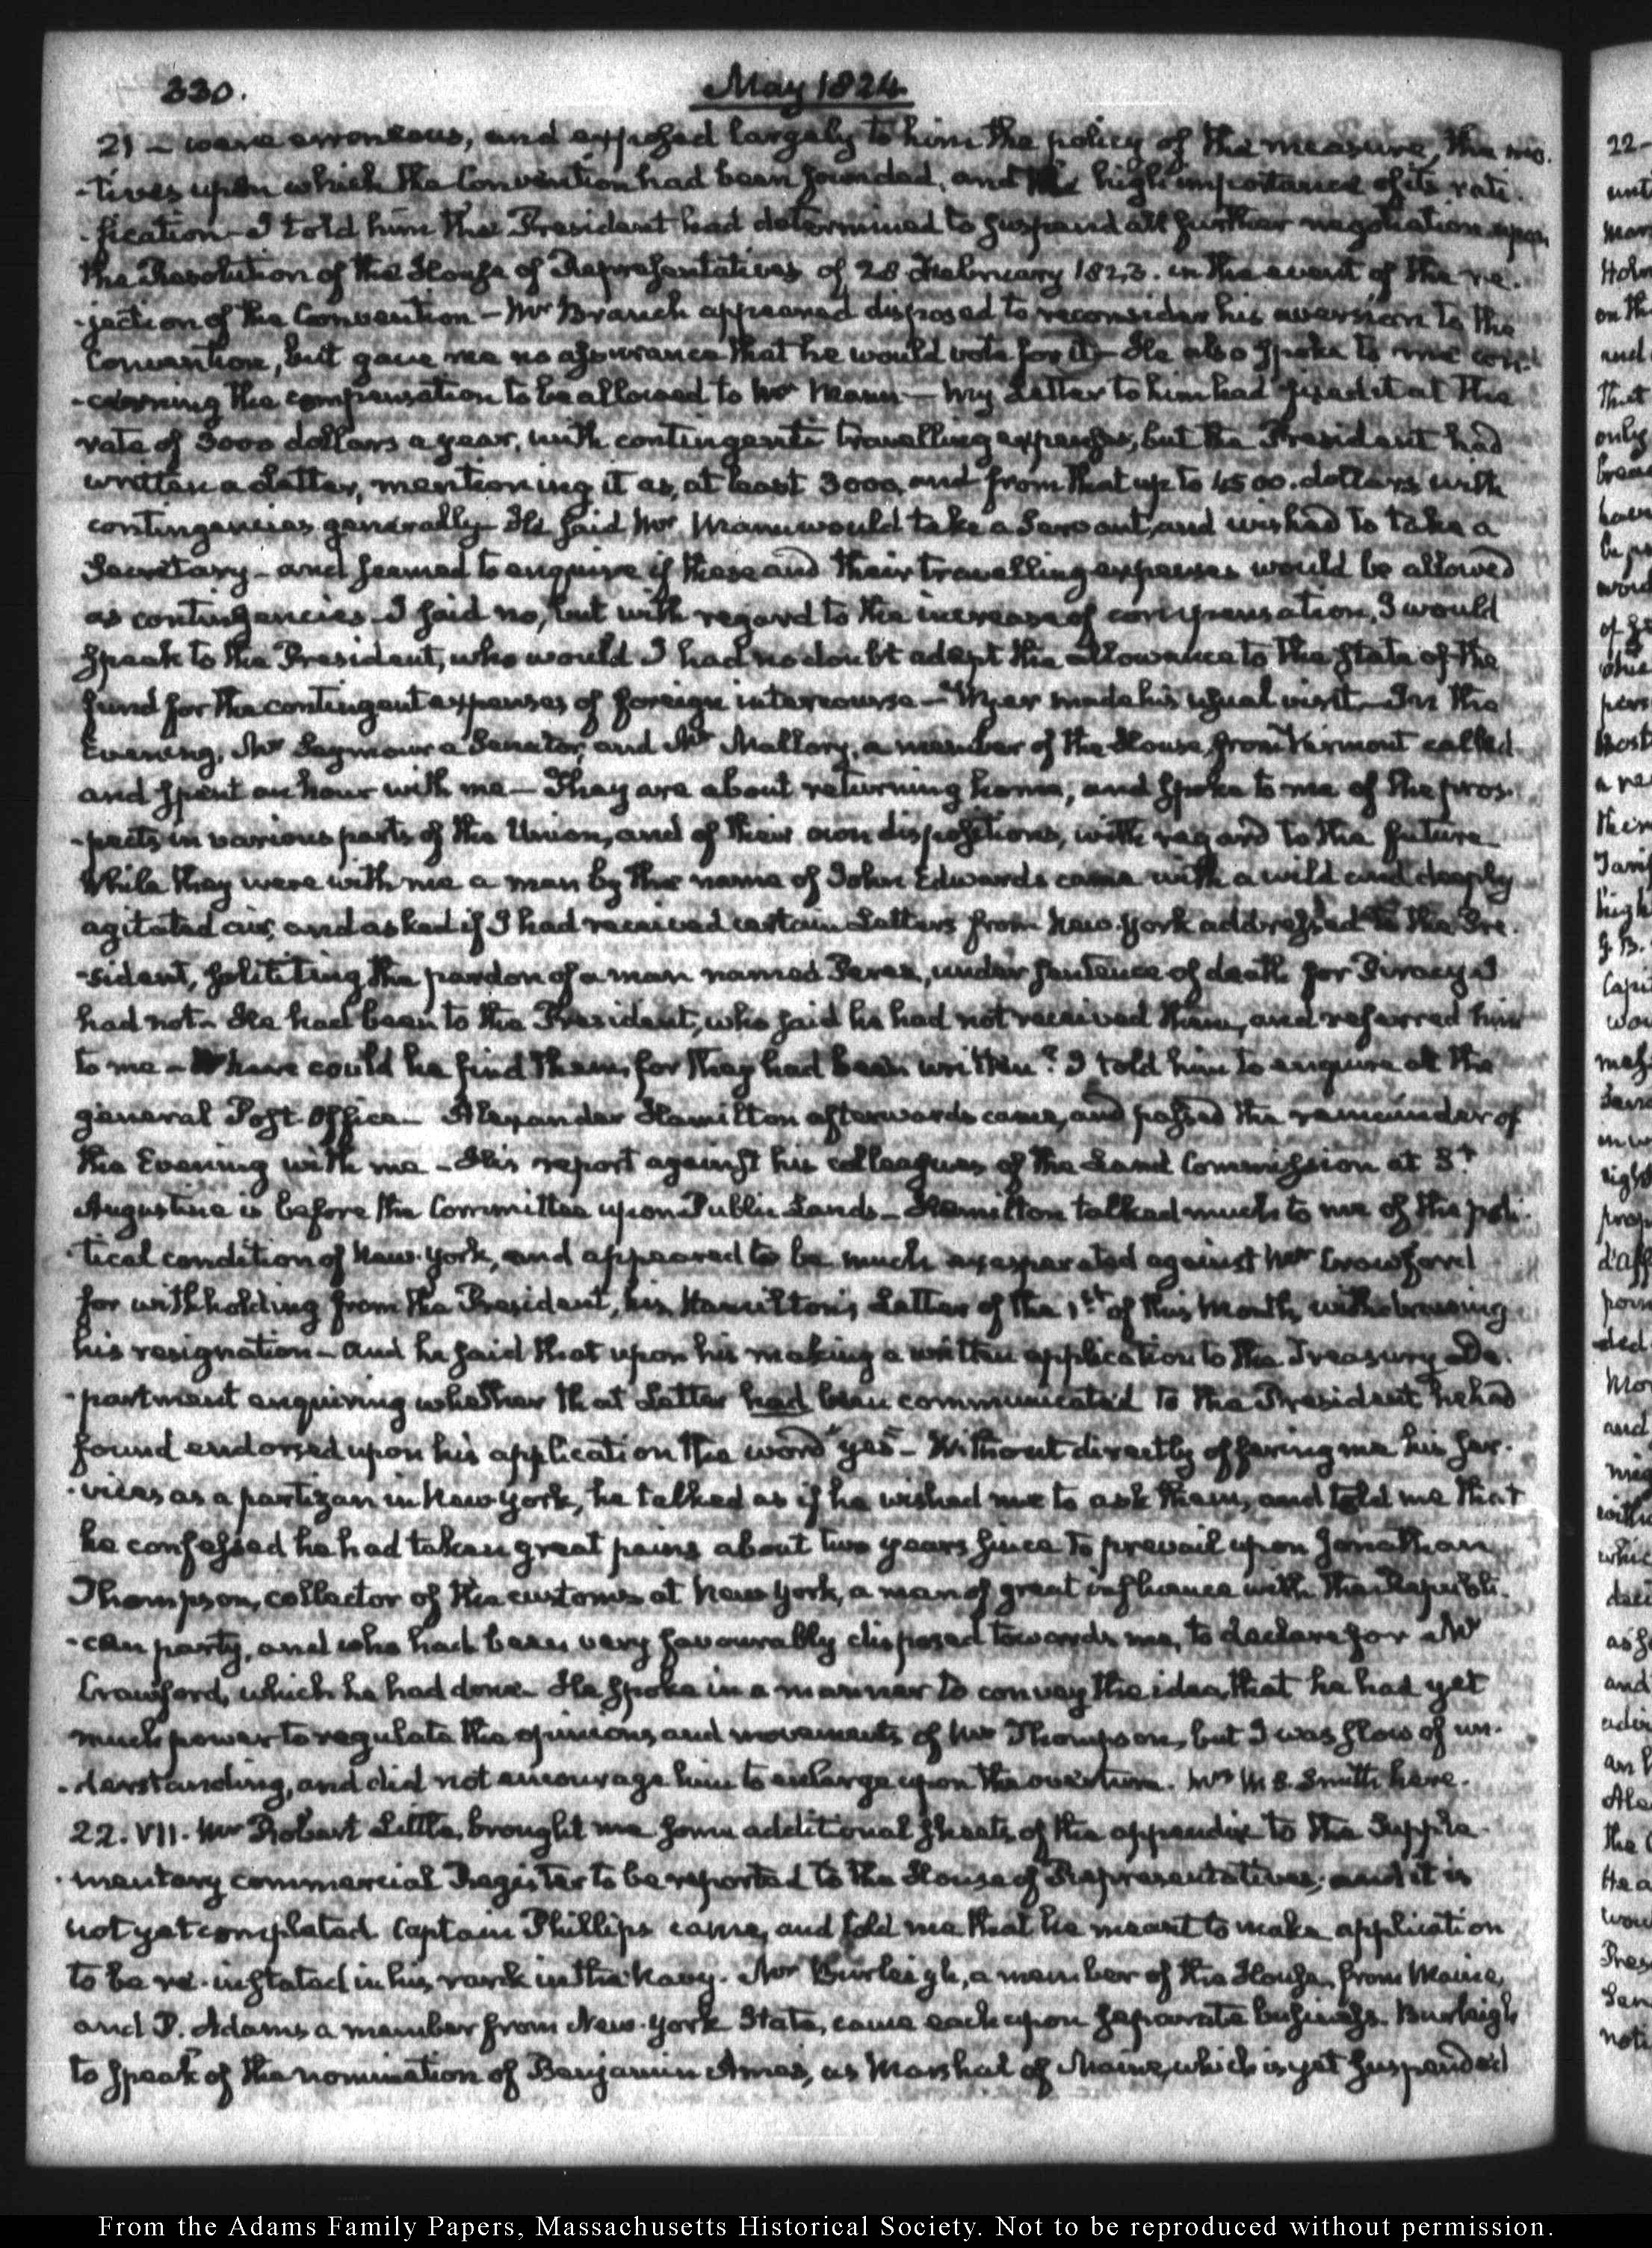 330.
May 1824
21 – were erroneous, and exposed largely to him the policy of the measure, the mo-
-tives upon which the Convention had been founded, and the high importance of its rati-
-fication – I told him the President had determined to suspend all further negotiation upon
the Resolution of the House of Representatives of 28 February 1823. in the event of the re-
-jection of the Convention – Mr Branch appeared disposed to reconsider his aversion to the
Convention, but gave me no assurance that he would vote for it – He also spoke to me con-
-cerning the compensation to be allowed to Mr Mann – My Letter to him had fixed it at the
rate of 3000 dollars a year, with contingent travelling expenses, but the President had
written a Letter, mentioning it as, at least 3000, and from that up to 4500. dollars with
contingencies generally – He said Mr Mann would take a Servant, and wished to take a
Secretary – and seemed to enquire if these and their travelling expenses would be allowed
as contingencies – I said no, but with regard to the increase of compensation, I would
speak to the President, who would I had no doubt adapt the allowance to the state of the
fund for the contingent expenses of foreign intercourse – Wyer made his usual visit – In the
Evening, Mr Seymour a Senator, and Mr Mallary, a member of the House, from Vermont called
and spent an hour with me – They are about returning home, and spoke to me of the pros-
-pects in various parts of the Union, and of their own dispositions, with regard to the future
While they were with me a man by the name of John Edwards came with a wild and deeply
agitated air, and asked if I had received certain Letters from New-York addressed to the Pre-
-sident, soliciting the pardon of a man named Perez, under sentence of death for Piracy – I
had not – He had been to the President, who said he had not received them, and referred him
to me – Where could he find them, for they had been written? I told him to enquire at the
general Post-Office – Alexander Hamilton afterwards came, and passed the remainder of
the Evening with me – His report against his colleagues of the Land Commission at St
Augustine is before the Committee upon Public Lands – Hamilton talked much to me of the poli-
-tical condition of New-York, and appeared to be much exasperated against Mr Crawford
for withholding from the President, his, Hamilton's, Letter of the 1st of this Month, withdrawing
his resignation – and he said that upon his making a written application to the Treasury De-
-partment enquiring whether that Letter had been communicated to the President he had
found endorsed upon his application the word "yes" – Without directly offering me his ser-
-vices as a partizan in New-York, he talked as if he wished me to ask them, and told me that
he confessed he had taken great pains about two years since to prevail upon Jonathan
Thompson, collector of the customs at New York, a man of great influence with the Republi-
-can party, and who had been very favourably disposed towards me, to declare for Mr
Crawford, which he had done – He spoke in a manner to convey the idea, that he had yet
much power to regulate the opinions and movements of Mr Thompson, but I was slow of un-
-derstanding, and did not encourage him to enlarge upon the overture. Mrs M. B. Smith here.
22. VII. Mr Robert Little, brought me some additional sheets of the appendix to the Supple-
-mentary commercial Register to be reported to the House of Representatives; and it is
not yet completed Captain Phillips came, and told me that he meant to make application
to be re-instated in his rank in the Navy. Mr Burleigh, a member of the House, from Maine,
and P. Adams a member from New-York State, came each upon separate business. Burleigh
to speak of the nomination of Benjamin Ames, as Marshal of Maine, which is yet suspended
From the Adams Family Papers, Massachusetts Historical Society. Not to be reproduced without permission.